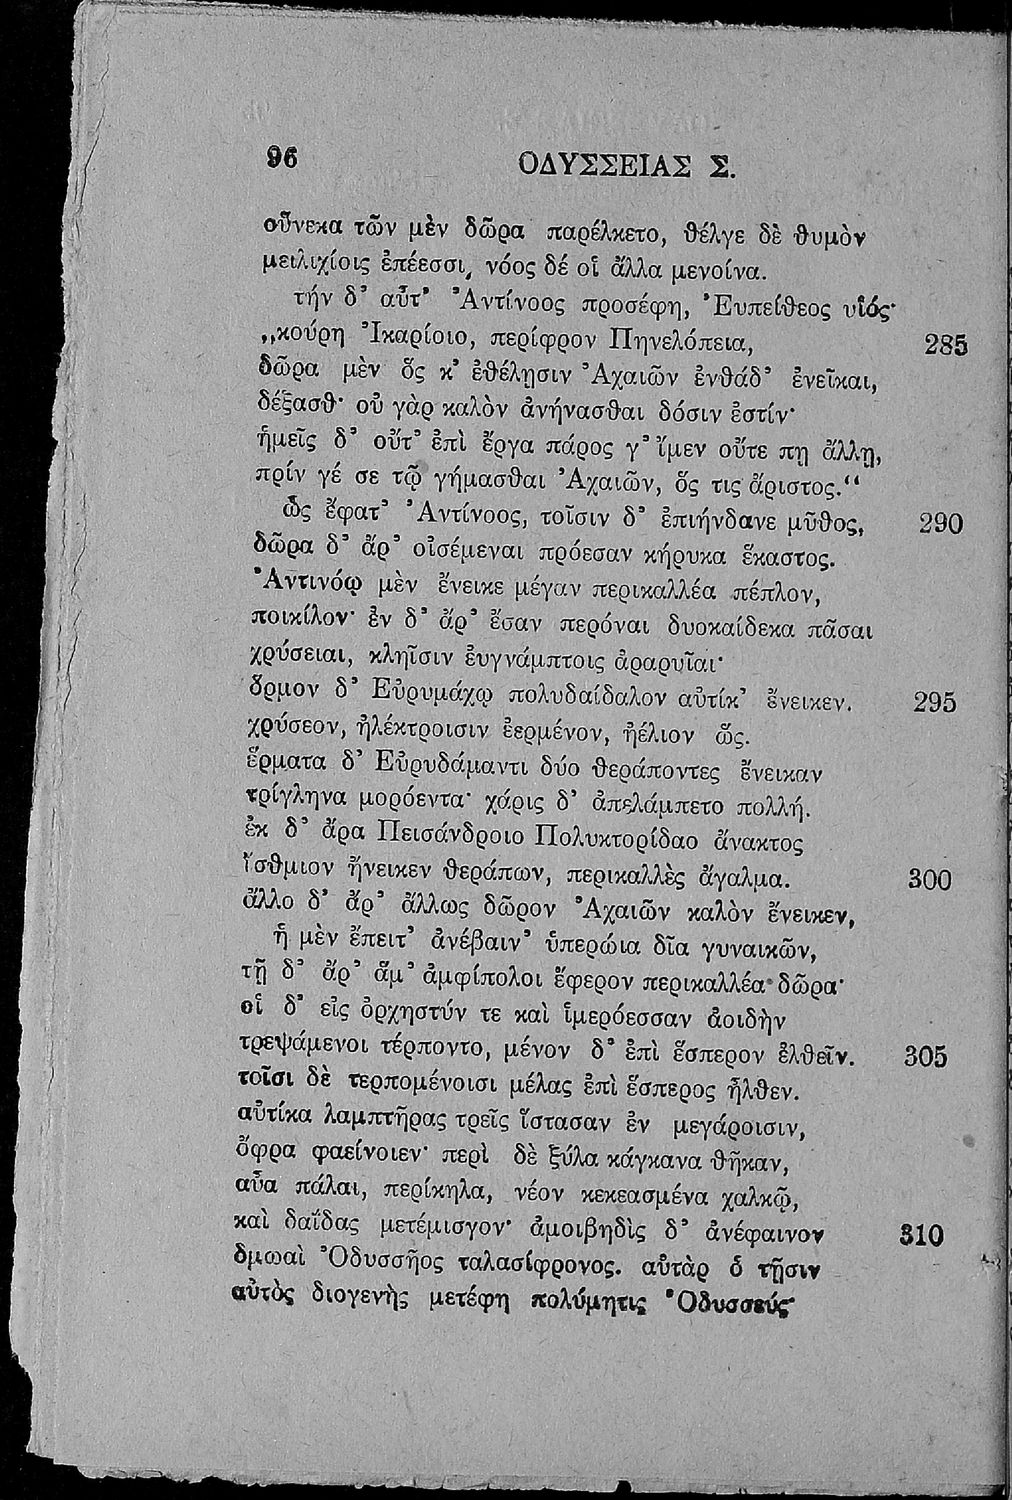 96 ΟΔΥΣΣΕΙΑΣ Σ.
οὕνεκα τῶν μὲν δῶρα παρέλκετο, θέλγε δὲ θυμὸν
μειλιχίοις ἐπέεσσι, νόος δέ οἱ ἄλλα μενοίνα.
τήν δ᾽ αὖτ᾽ Ἀντίνοος προσέφη, Ἐυπείθεος υἱός·
„κούρη Ἰκαρίοιο, περίφρον Πηνελόπεια, 285
δῶρα μὲν ὅς κ᾽ ἐθέλῃσιν Ἀχαιῶν ἐνθάδ᾽ ἐνεῖκαι,
δέξασθ· οὐ γὰρ καλὸν ἀνήνασθαι δόσιν ἐστίν·
ἡμεῖς δ᾽ οὔτ᾽ ἐπὶ ἔργα πάρος γ᾽ ἴμεν οὔτε πῃ ἄλλῃ,
πρίν γέ σε τῷ γήμασθαι Ἀχαιῶν, ὅς τις ἄριστος.“
ὣς ἔφατ᾽ Ἀντίνοος, τοῖσιν δ᾽ ἐπιήνδανε μῦθος, 290
δῶρα δ᾽ ἄρ᾽ οἰσέμεναι πρόεσαν κήρυκα ἕκαστος.
Ἀντινόῳ μὲν ἔνεικε μέγαν περικαλλέα πέπλον,
ποικίλον· ἐν δ᾽ ἄρ᾽ ἔσαν περόναι δυοκαίδεκα πᾶσαι
χρύσειαι, κληῖσιν ἐυγνάμπτοις ἀραρυῖαι·
ὅρμον δ᾽ Εὐρυμάχῳ πολυδαίδαλον αὐτίκ᾽ ἔνεικεν. 295
χρύσεον, ἠλέκτροισιν ἐερμένον, ἠέλιον ὥς.
ἕρματα δ᾽ Εὐρυδάμαντι δύο θεράποντες ἔνεικαν
τρίγληνα μορόεντα· χάρις δ᾽ ἀπελάμπετο πολλή.
ἐκ δ᾽ ἄρα Πεισάνδροιο Πολυκτορίδαο ἄνακτος
ἴσθμιον ἤνεικεν θεράπων, περικαλλὲς ἄγαλμα. 300
ἄλλο δ᾽ ἄρ᾽ ἄλλως δῶρον Ἀχαιῶν καλὸν ἔνεικεν,
ἡ μὲν ἔπειτ᾽ ἀνέβαιν᾽ ὑπερώια δῖα γυναικῶν,
τῇ δ᾽ ἄρ᾽ ἅμ᾽ ἀμφίπολοι ἔφερον περικαλλέα δῶρα·
οἱ δ᾽ εἰς ὀρχηστύν τε καὶ ἱμερόεσσαν ἀοιδὴν
τρεψάμενοι τέρποντο, μένον δ᾽ ἐπὶ ἕσπερον ἐλθεῖν. 305
τοῖσι δὲ τερπομένοισι μέλας ἐπὶ ἕσπερος ἦλθεν.
αὐτίκα λαμπτῆρας τρεῖς ἵστασαν ἐν μεγάροισιν,
ὄφρα φαείνοιεν· περὶ δὲ ξύλα κάγκανα θῆκαν,
αὖα πάλαι, περίκηλα, νέον κεκεασμένα χαλκῷ,
καὶ δαΐδας μετέμισγον· ἀμοιβηδὶς δ᾽ ἀνέφαινον 310
δμωαὶ Ὀδυσσῆος ταλασίφρονος. αὐτὰρ ὁ τῇσιν
αὐτὸς διογενὴς μετέφη πολύμητις Ὀδυσσεύς·